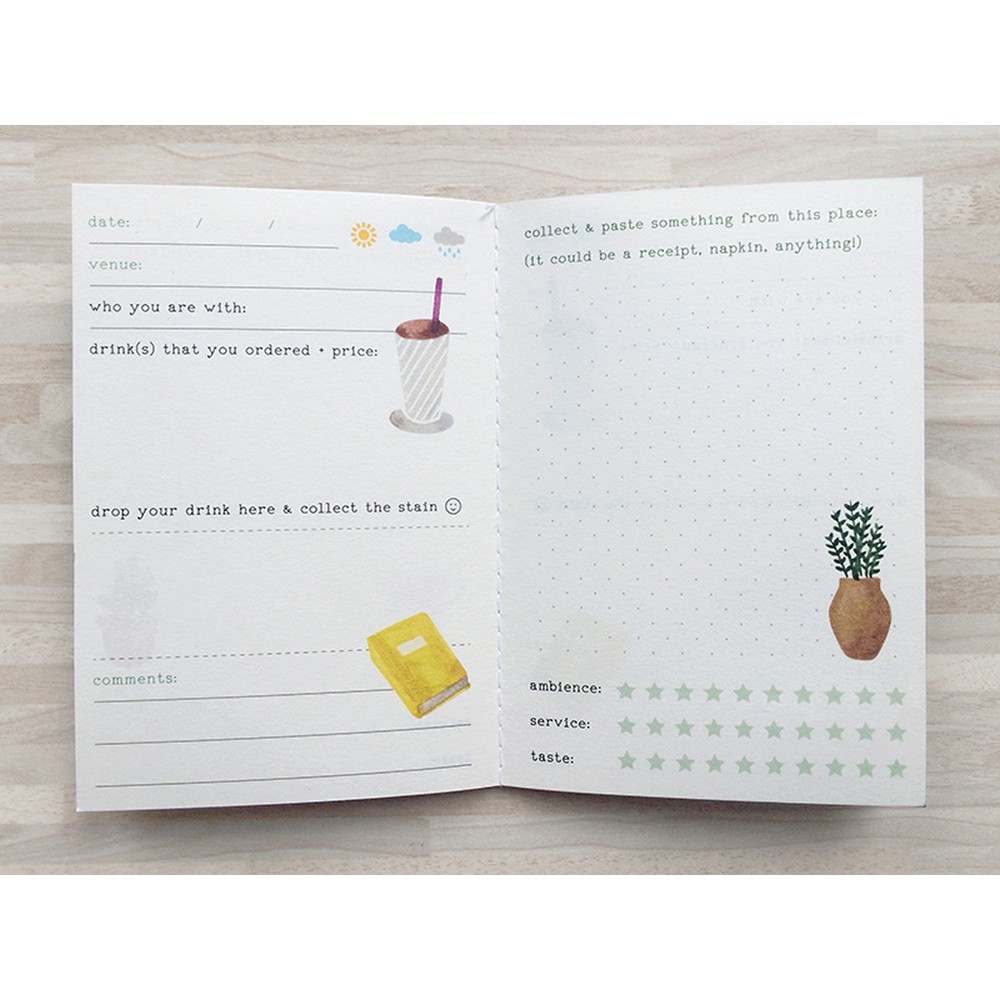 date: / /
venue:
who you are with:
drink(s) that you ordered + price:
drop your drink here & collect the stain ☺
comments:
collect & paste something from this place:
(it could be a receipt, napkin, anything!)
ambience:
service:
taste: